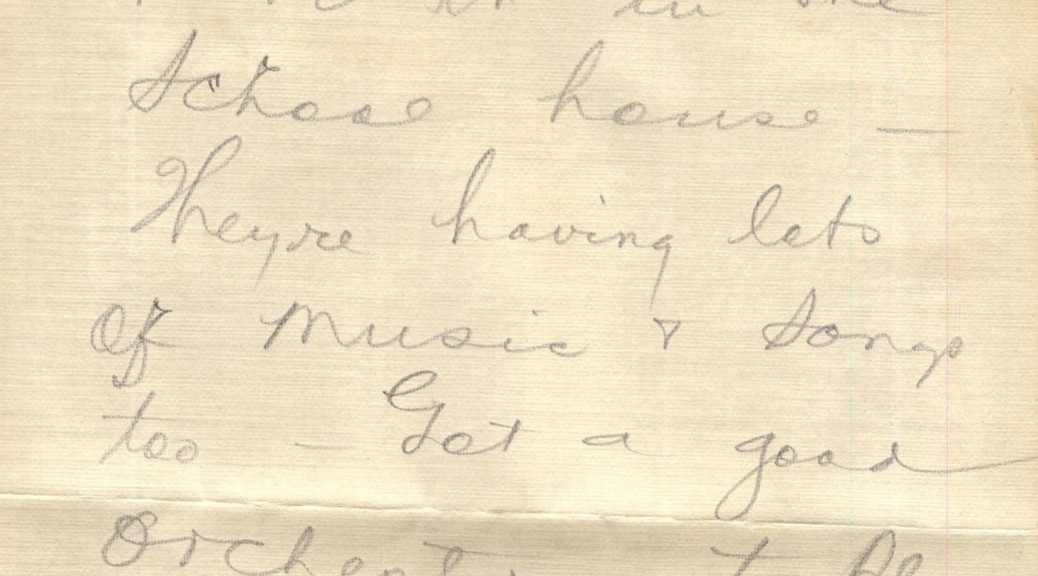 in the
School house —
They're having lots
of music & songs
too — Got a good
Orchestra to